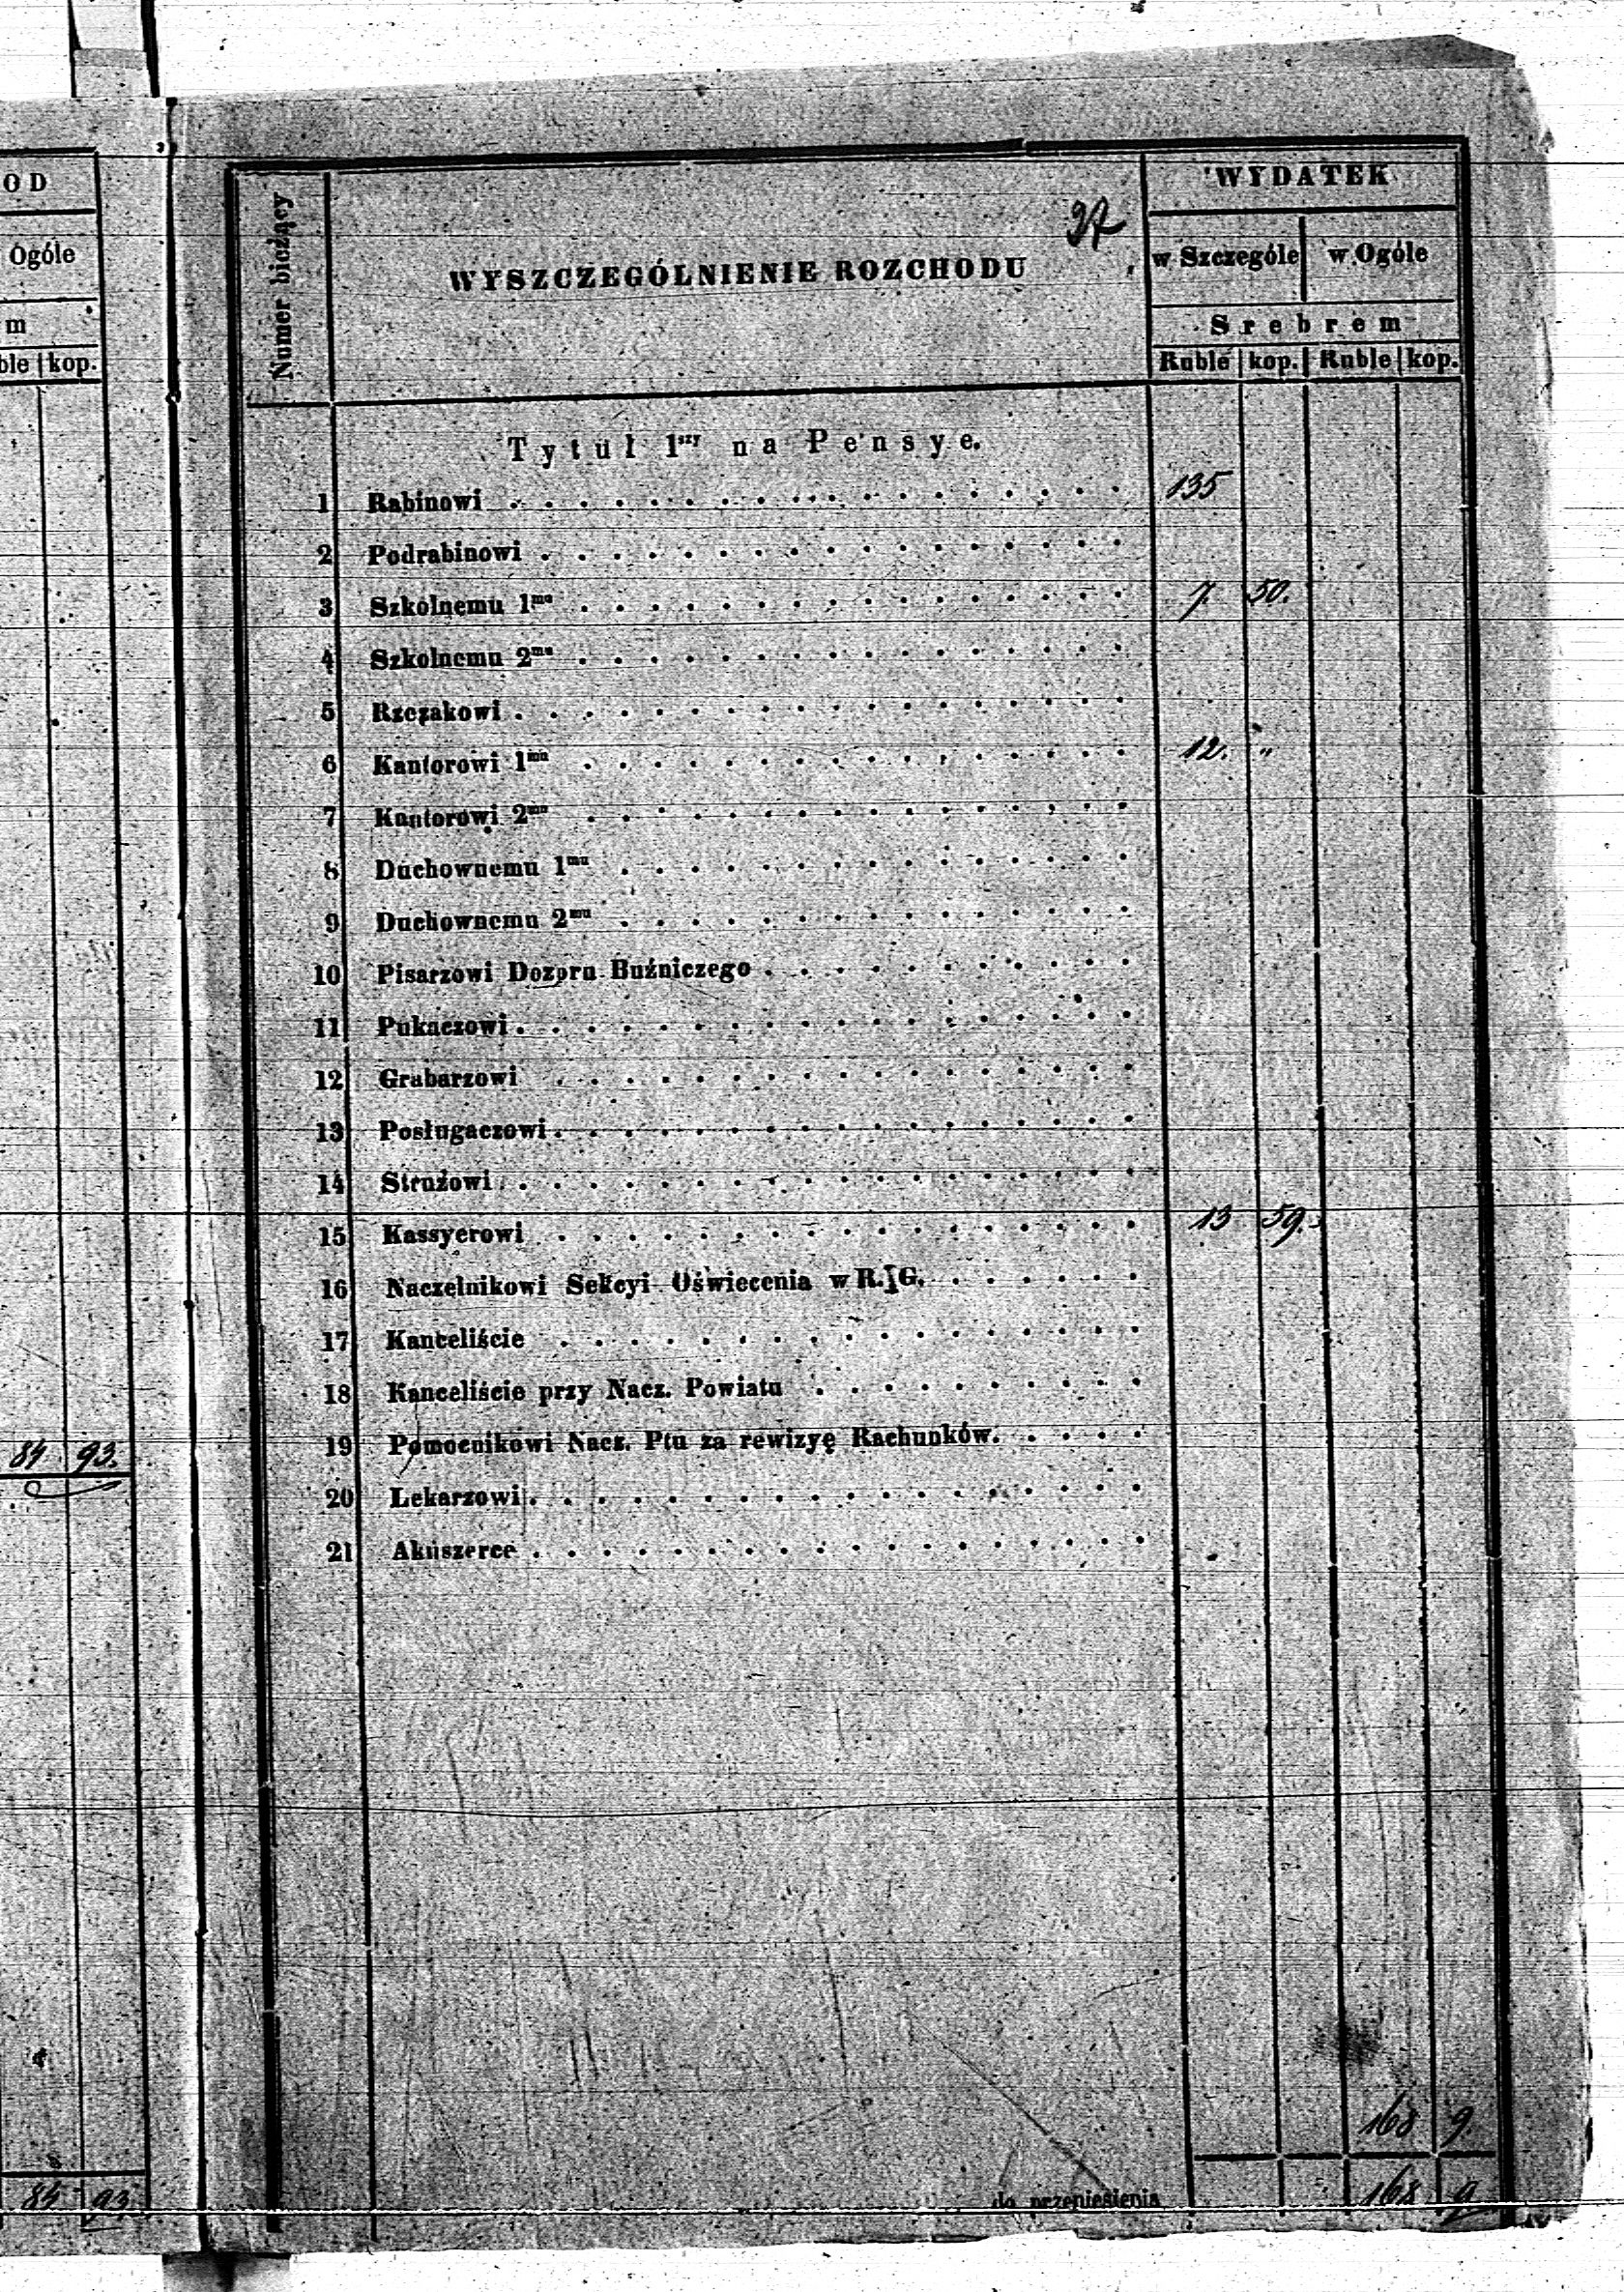 OD
Ogóle
m
ble kop.
84 93.
84 93
37
Numer bieżący
WYSZCZEGÓLNIENIE ROZCHODU
WYDATEK
w Szczególe w Ogóle
Srebrem
Ruble kop. Ruble kop.
Tytuł 1szy na Pensye.
1 Rabinowi . . . . . . . . . . . . . . . . . . 135
2 Podrabinowi . . . . . . . . . . . . . . . . .
3 Szkolnemu 1mu . . . . . . . . . . . . . . . . 7 50.
4 Szkolnemu 2mu . . . . . . . . . . . . . . . .
5 Rzezakowi . . . . . . . . . . . . . . . . . .
6 Kantorowi 1mu . . . . . . . . . . . . . . . . 12. "
7 Kantorowi 2mu . . . . . . . . . . . . . . . .
8 Duchownemu 1mu . . . . . . . . . . . . . . .
9 Duchownemu 2mu . . . . . . . . . . . . . . .
10 Pisarzowi Dozoru Buźniczego . . . . . . . . . . .
11 Pukaczowi . . . . . . . . . . . . . . . . . .
12 Grabarzowi . . . . . . . . . . . . . . . . .
13 Posługaczowi . . . . . . . . . . . . . . . . .
14 Stružowi . . . . . . . . . . . . . . . . . .
15 Kassyerowi . . . . . . . . . . . . . . . . . 13 59.
16 Naczelnikowi Sekcyi Oświecenia w R. G. . . . . . .
17 Kanceliście . . . . . . . . . . . . . . . . .
18 Kanceliście przy Nacz. Powiatu . . . . . . . . . .
19 Pomocnikowi Nacz. Ptu za rewizyę Rachunków. . . . .
20 Lekarzowi . . . . . . . . . . . . . . . . . .
21 Akuszerce . . . . . . . . . . . . . . . . . .
168 9.
do przeniesienia 168 9